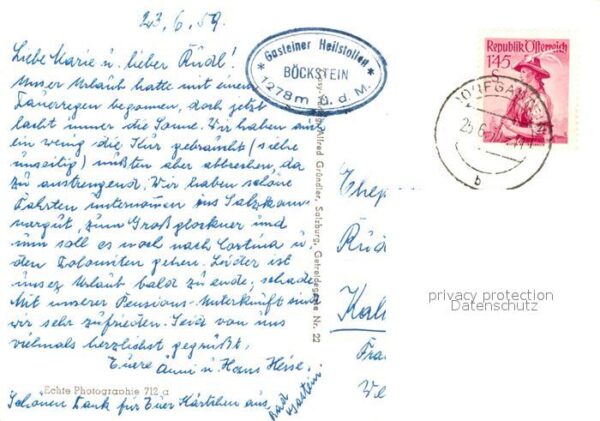 23.6.59.
Liebe Marie u. lieber Rüdl!
Unser Urlaub hatte mit einem
Dauerregen begonnen, doch jetzt
lacht immer die Sonne. Wir haben auch
ein wenig die Kur gebraucht (siehe
umseitig) mußten aber abbrechen, da
zu anstrengend. Wir haben schöne
Fahrten unternommen ins Salzkam-
mergut, zum Großglockner und
nun soll es noch nach Cortina u.
den Dolomiten gehen. Leider ist
unser Urlaub bald zu ende, schade.
Mit unserer Pensions-Unterkunft sind
wir sehr zufrieden. Seid von uns
vielmals herzlichst gegrüßt.
Euere Änni u Hans Heise.
Echte Photographie 712 a
Schönen Dank für Euer Kärtchen aus
Bad
Gastein.
* Gasteiner Heilstollen *
BÖCKSTEIN
1278m ü. d. M.
Alfred Gründler, Salzburg, Getreidegasse Nr. 22
Republik Österreich
1'45
S
b
Ehep
Rüd
Kal
Fra
We
privacy protection
Datenschutz